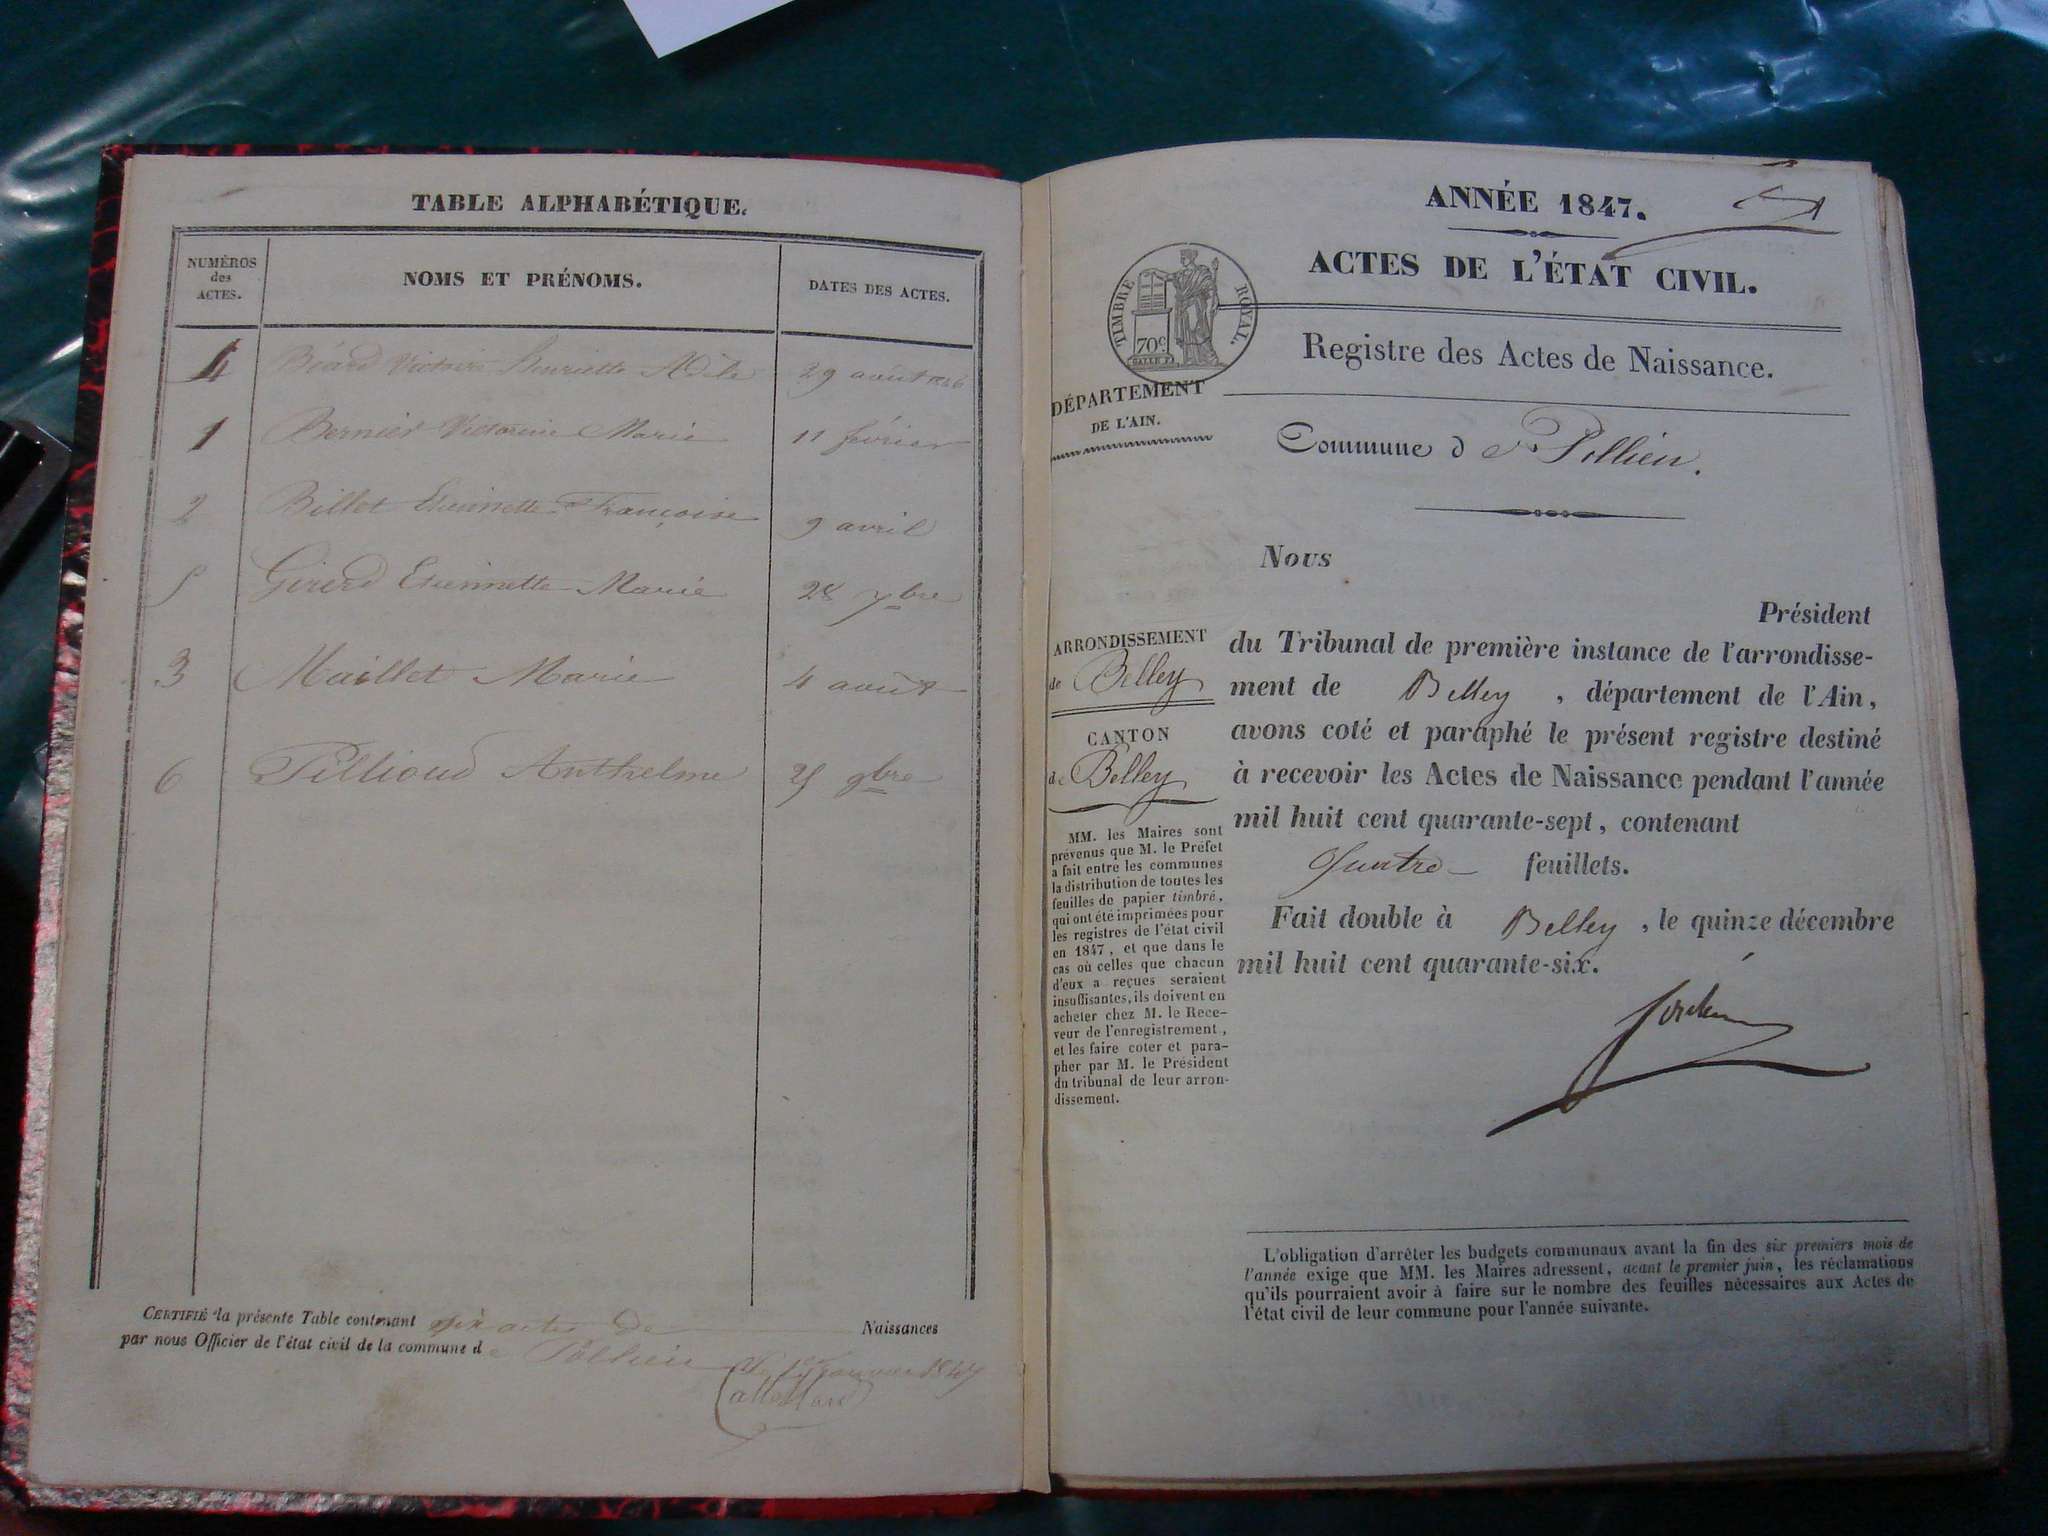 TABLE ALPHABÉTIQUE.
NUMÉROS des ACTES. NOMS ET PRÉNOMS. DATES DES ACTES.
4 Béard Victoire Henriette Adèle 29 août 1846
1 Bernier Victorine Marie 11 février
2 Billet Etiennette Françoise 9 avril
5 Girerd Etiennette Marie 28 7bre
3 Maillet Marie 4 août
6 Pillioud Anthelme 25 9bre
CERTIFIÉ la présente Table contenant six actes de Naissances
par nous Officier de l'état civil de la commune de Pollieu
le 1er janvier 1847
ANNÉE 1847.
ACTES DE L'ÉTAT CIVIL.
TIMBRE ROYAL.
70c
Registre des Actes de Naissance.
DÉPARTEMENT
DE L'AIN.
Commune de Pollieu.
Nous
Président
du Tribunal de première instance de l'arrondisse-
ment de Belley, département de l'Ain,
avons coté et paraphé le présent registre destiné
à recevoir les Actes de Naissance pendant l'année
mil huit cent quarante-sept, contenant
Quatre feuillets.
Fait double à Belley, le quinze décembre
mil huit cent quarante-six.
ARRONDISSEMENT
de Belley
CANTON
de Belley
MM. les Maires sont
prévenus que M. le Préfet
a fait entre les communes
la distribution de toutes les
feuilles de papier timbré,
qui ont été imprimées pour
les registres de l'état civil
en 1847, et que dans le
cas où celles que chacun
d'eux a reçues seraient
insuffisantes, ils doivent en
acheter chez M. le Rece-
veur de l'enregistrement,
et les faire coter et para-
pher par M. le Président
du tribunal de leur arron-
dissement.
L'obligation d'arrêter les budgets communaux avant la fin des six premiers mois de
l'année exige que MM. les Maires adressent, avant le premier juin, les réclamations
qu'ils pourraient avoir à faire sur le nombre des feuilles nécessaires aux Actes de
l'état civil de leur commune pour l'année suivante.